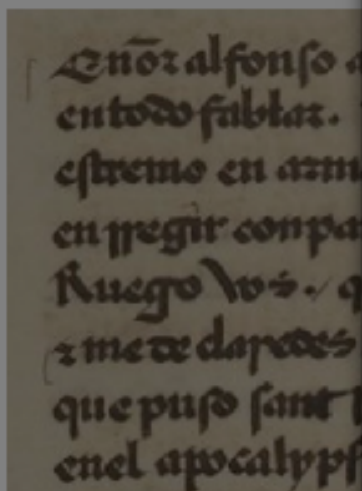 Señor alfonso
en todo fablar.
estremo en arm
en rregir conpa
Ruego vos. q
τ me declaredes
que puso sant
enel apocalyps